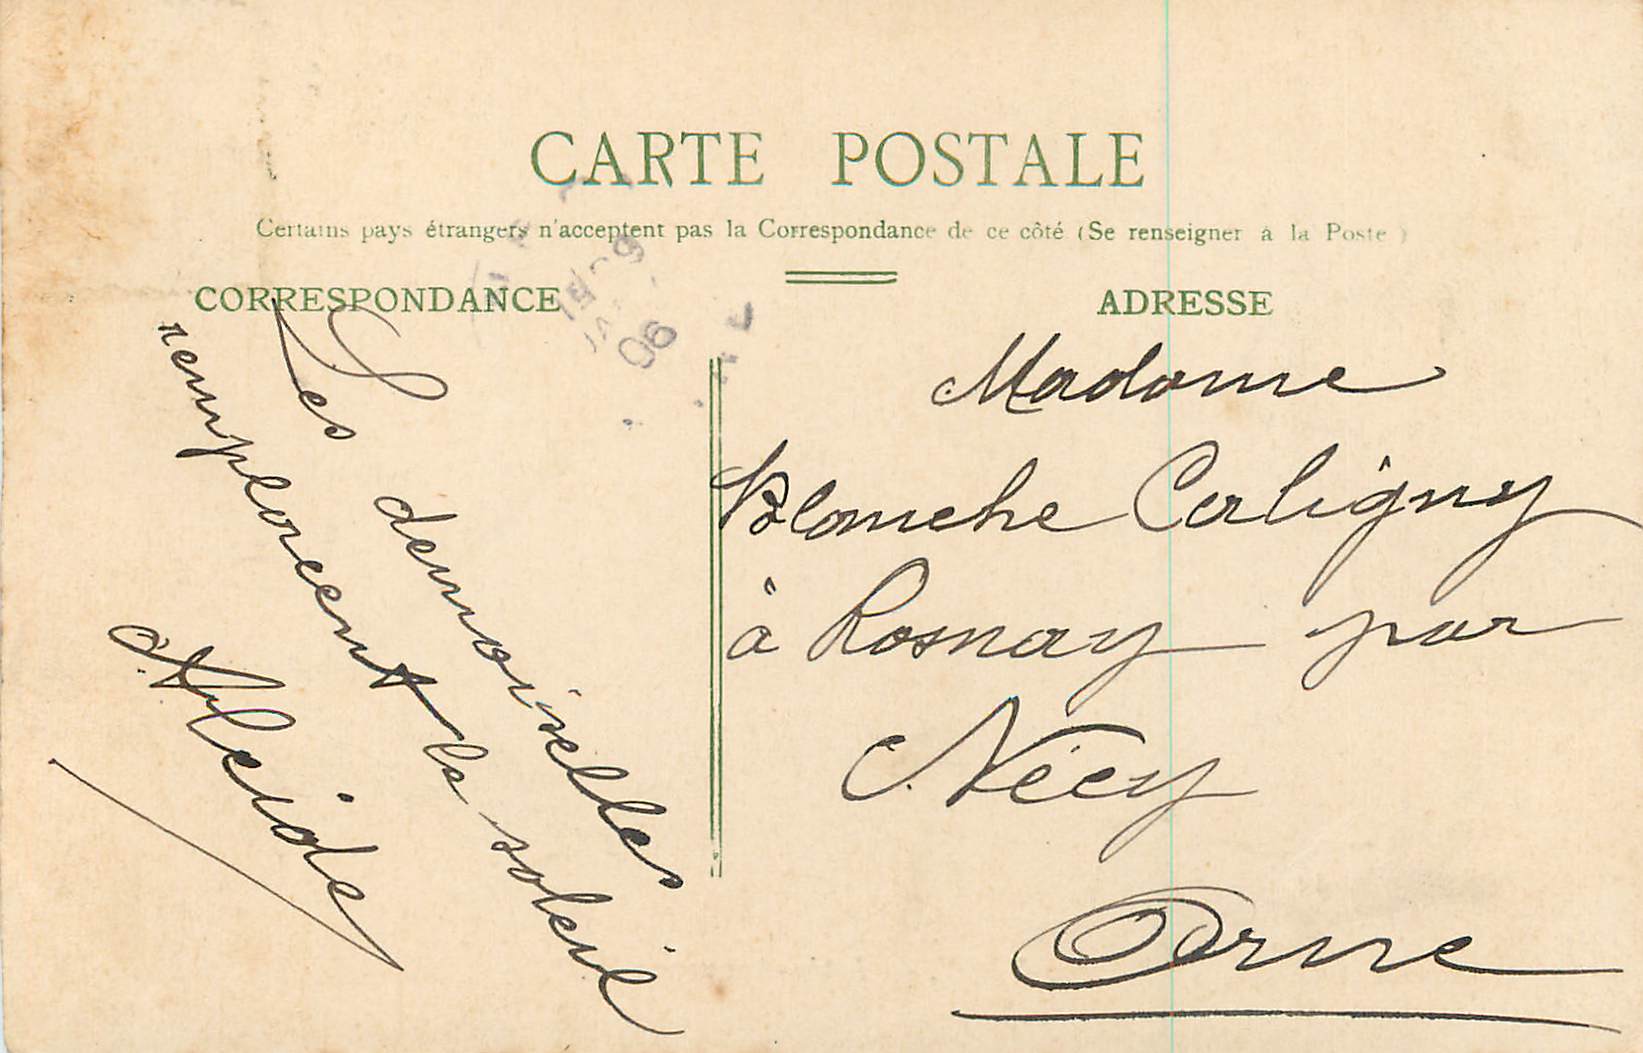 CARTE POSTALE
Certains pays étrangers n'acceptent pas la Correspondance de ce côté (Se renseigner à la Poste)
CORRESPONDANCE
Les demoiselles
remplorent le soleil
Alcide
ADRESSE
Madame
Blanche Carligny
à Rosnay par
Nécy
Orne
19-9
06